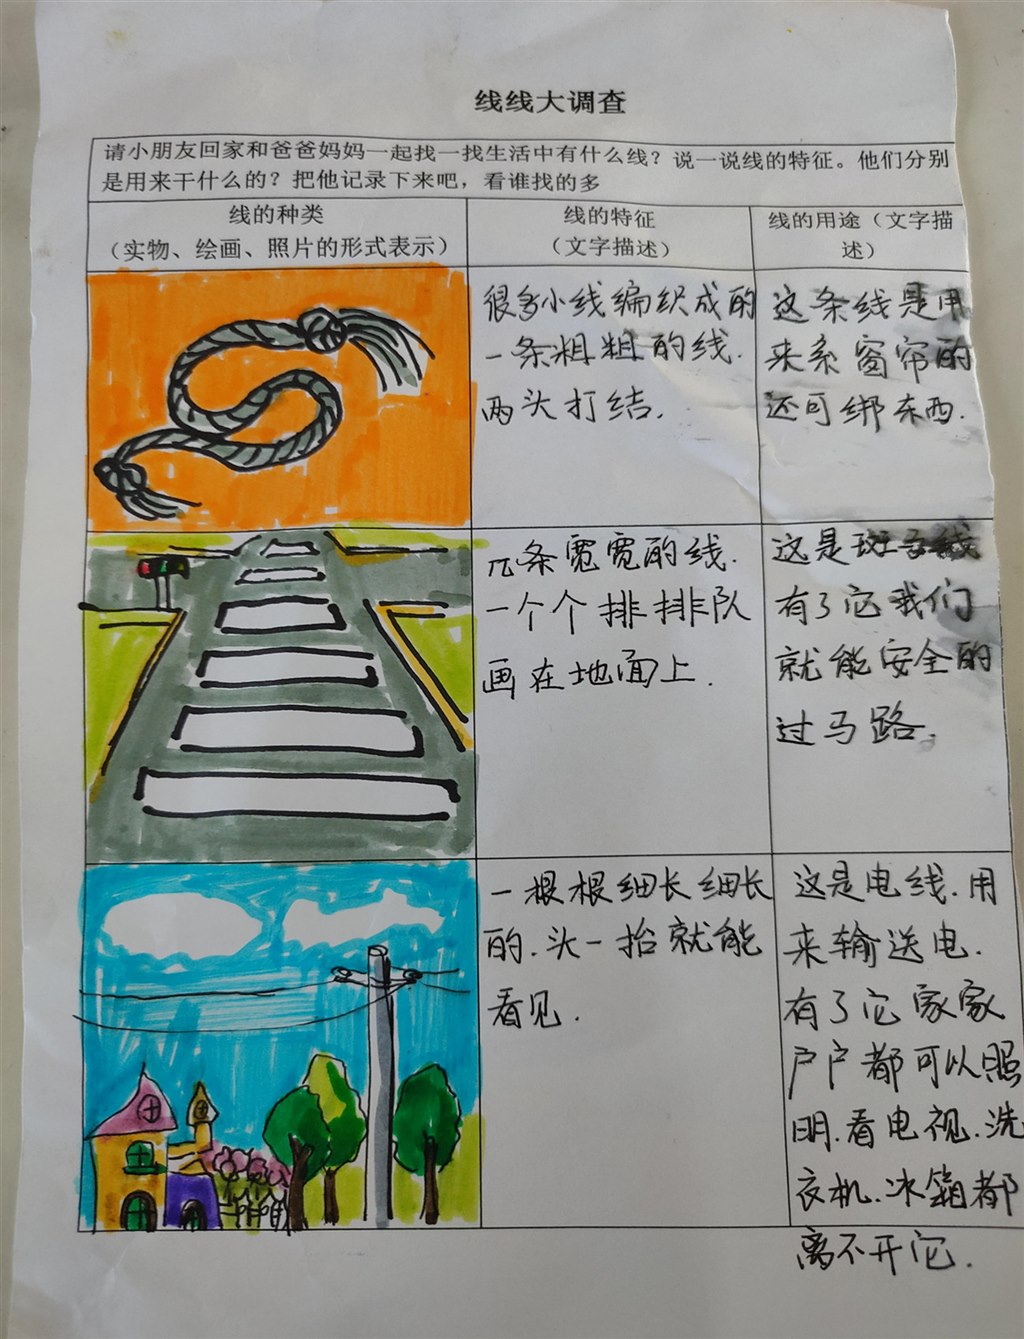 线线大调查
请小朋友回家和爸爸妈妈一起找一找生活中有什么线？说一说线的特征。他们分别
是用来干什么的？把他记录下来吧，看谁找的多
线的种类
（实物、绘画、照片的形式表示）
线的特征
（文字描述）
线的用途（文字描
述）
很多小线编织成的
一条粗粗的线.
两头打结.
这条线是用
来系窗帘的
还可绑东西.
几条宽宽的线.
一个个排排队
画在地面上.
这是斑马线
有了它我们
就能安全的
过马路.
一根根细长细长
的.头一抬就能
看见.
这是电线.用
来输送电.
有了它家家
户户都可以照
明.看电视.洗
衣机.冰箱都
离不开它.